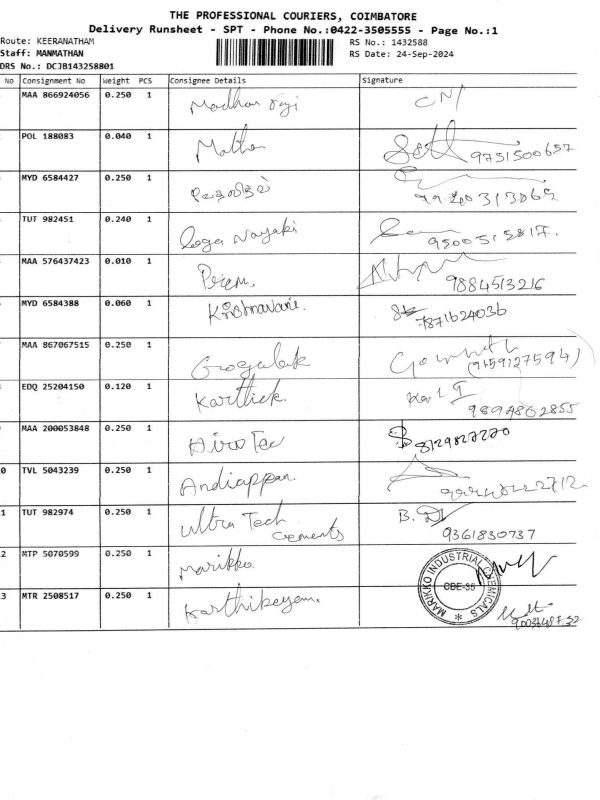 THE PROFESSIONAL COURIERS, COIMBATORE
Delivery Runsheet - SPT - Phone No.:0422-3505555 - Page No.:1
Route: KEERANATHAM RS No.: 1432588
Staff: MANMATHAN RS Date: 24-Sep-2024
DRS No.: DCJB143258801
No Consignment No Weight PCS Consignee Details Signature
MAA 866924056 0.250 1 Madhan
POL 188083 0.040 1 Mathan 9751500657
MYD 6584427 0.250 1
TUT 982451 0.240 1 Loga Nayaki 9500515817.
MAA 576437423 0.010 1 Prem. 9884513216
MYD 6584388 0.060 1 Krishnavani. 7871624036
MAA 867067515 0.250 1 (9159127594)
EDQ 25204150 0.120 1 Karthick 9894862855
MAA 200053848 0.250 1 Hiro Tec 8129827270
0 TVL 5043239 0.250 1 Andiappan.
1 TUT 982974 0.250 1 Ultra Tech B. 
Cements 9361830737
2 MTP 5070599 0.250 1 Marikko
3 MTR 2508517 0.250 1 Karthikeyan.
MARIKKO INDUSTRIAL CHEMICALS
CBE-35